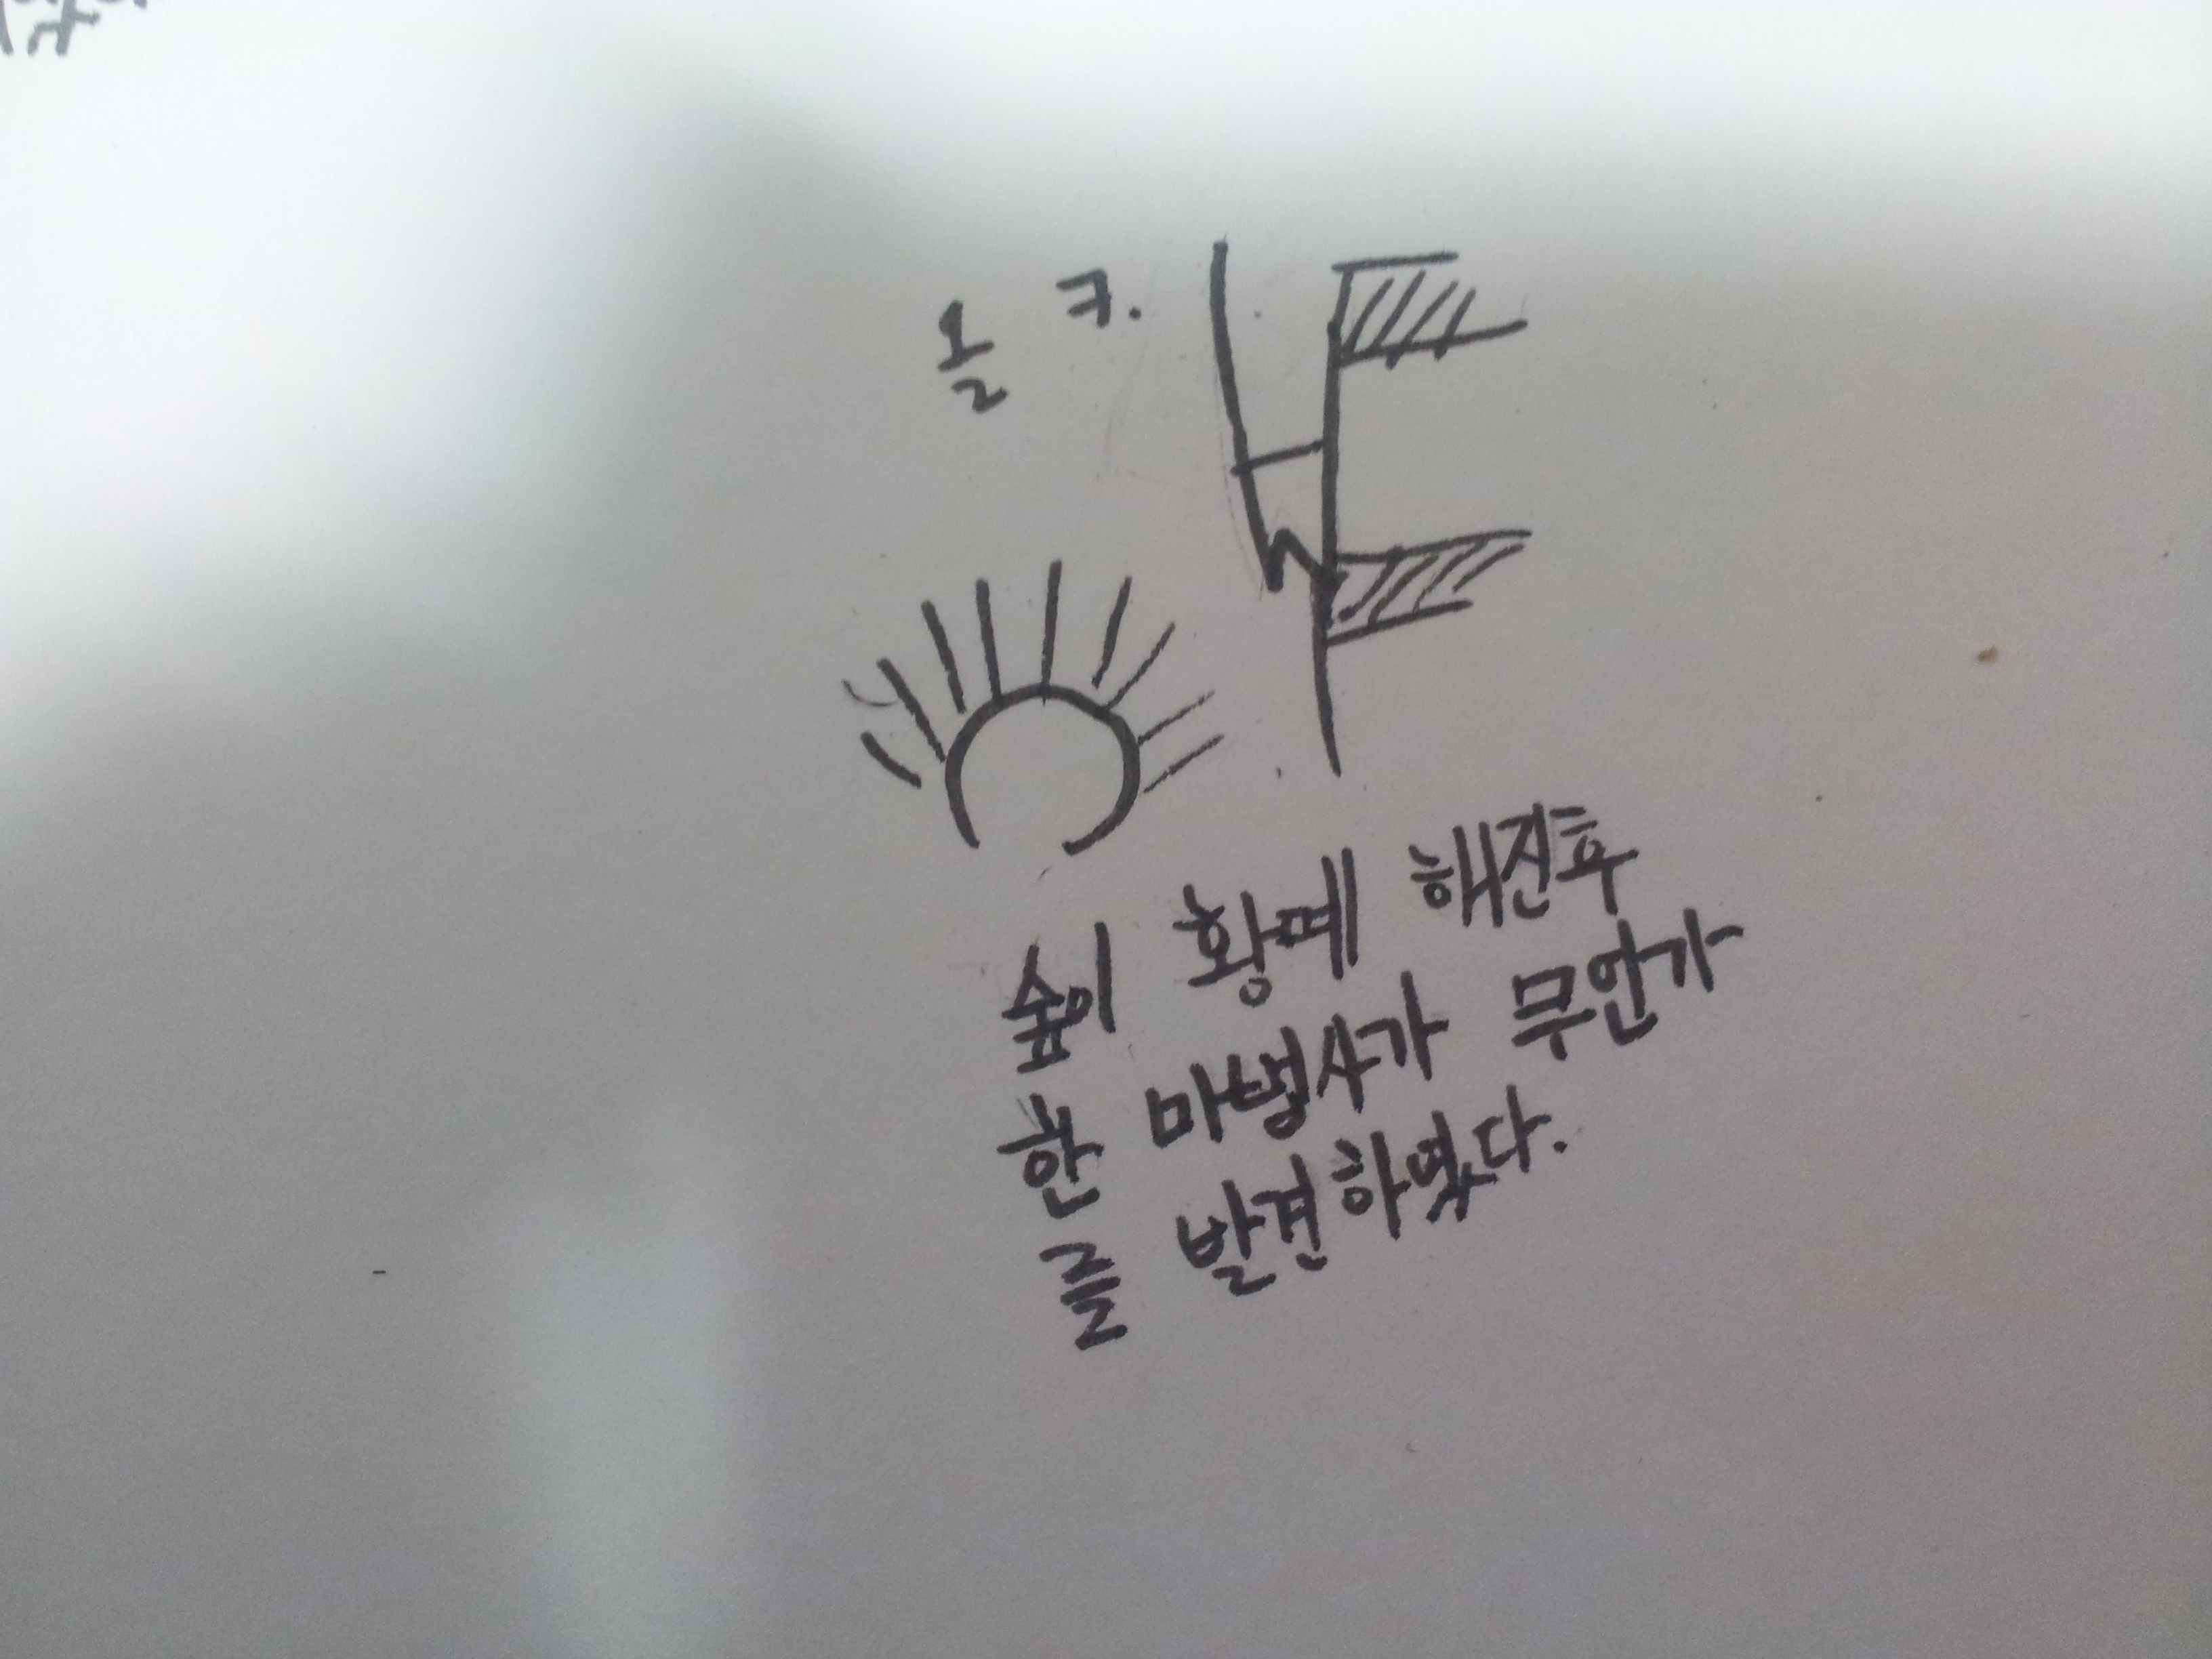 올 ㅋ.
숲이 황폐 해진후
한 마법사가 무언가
를 발견하였다.